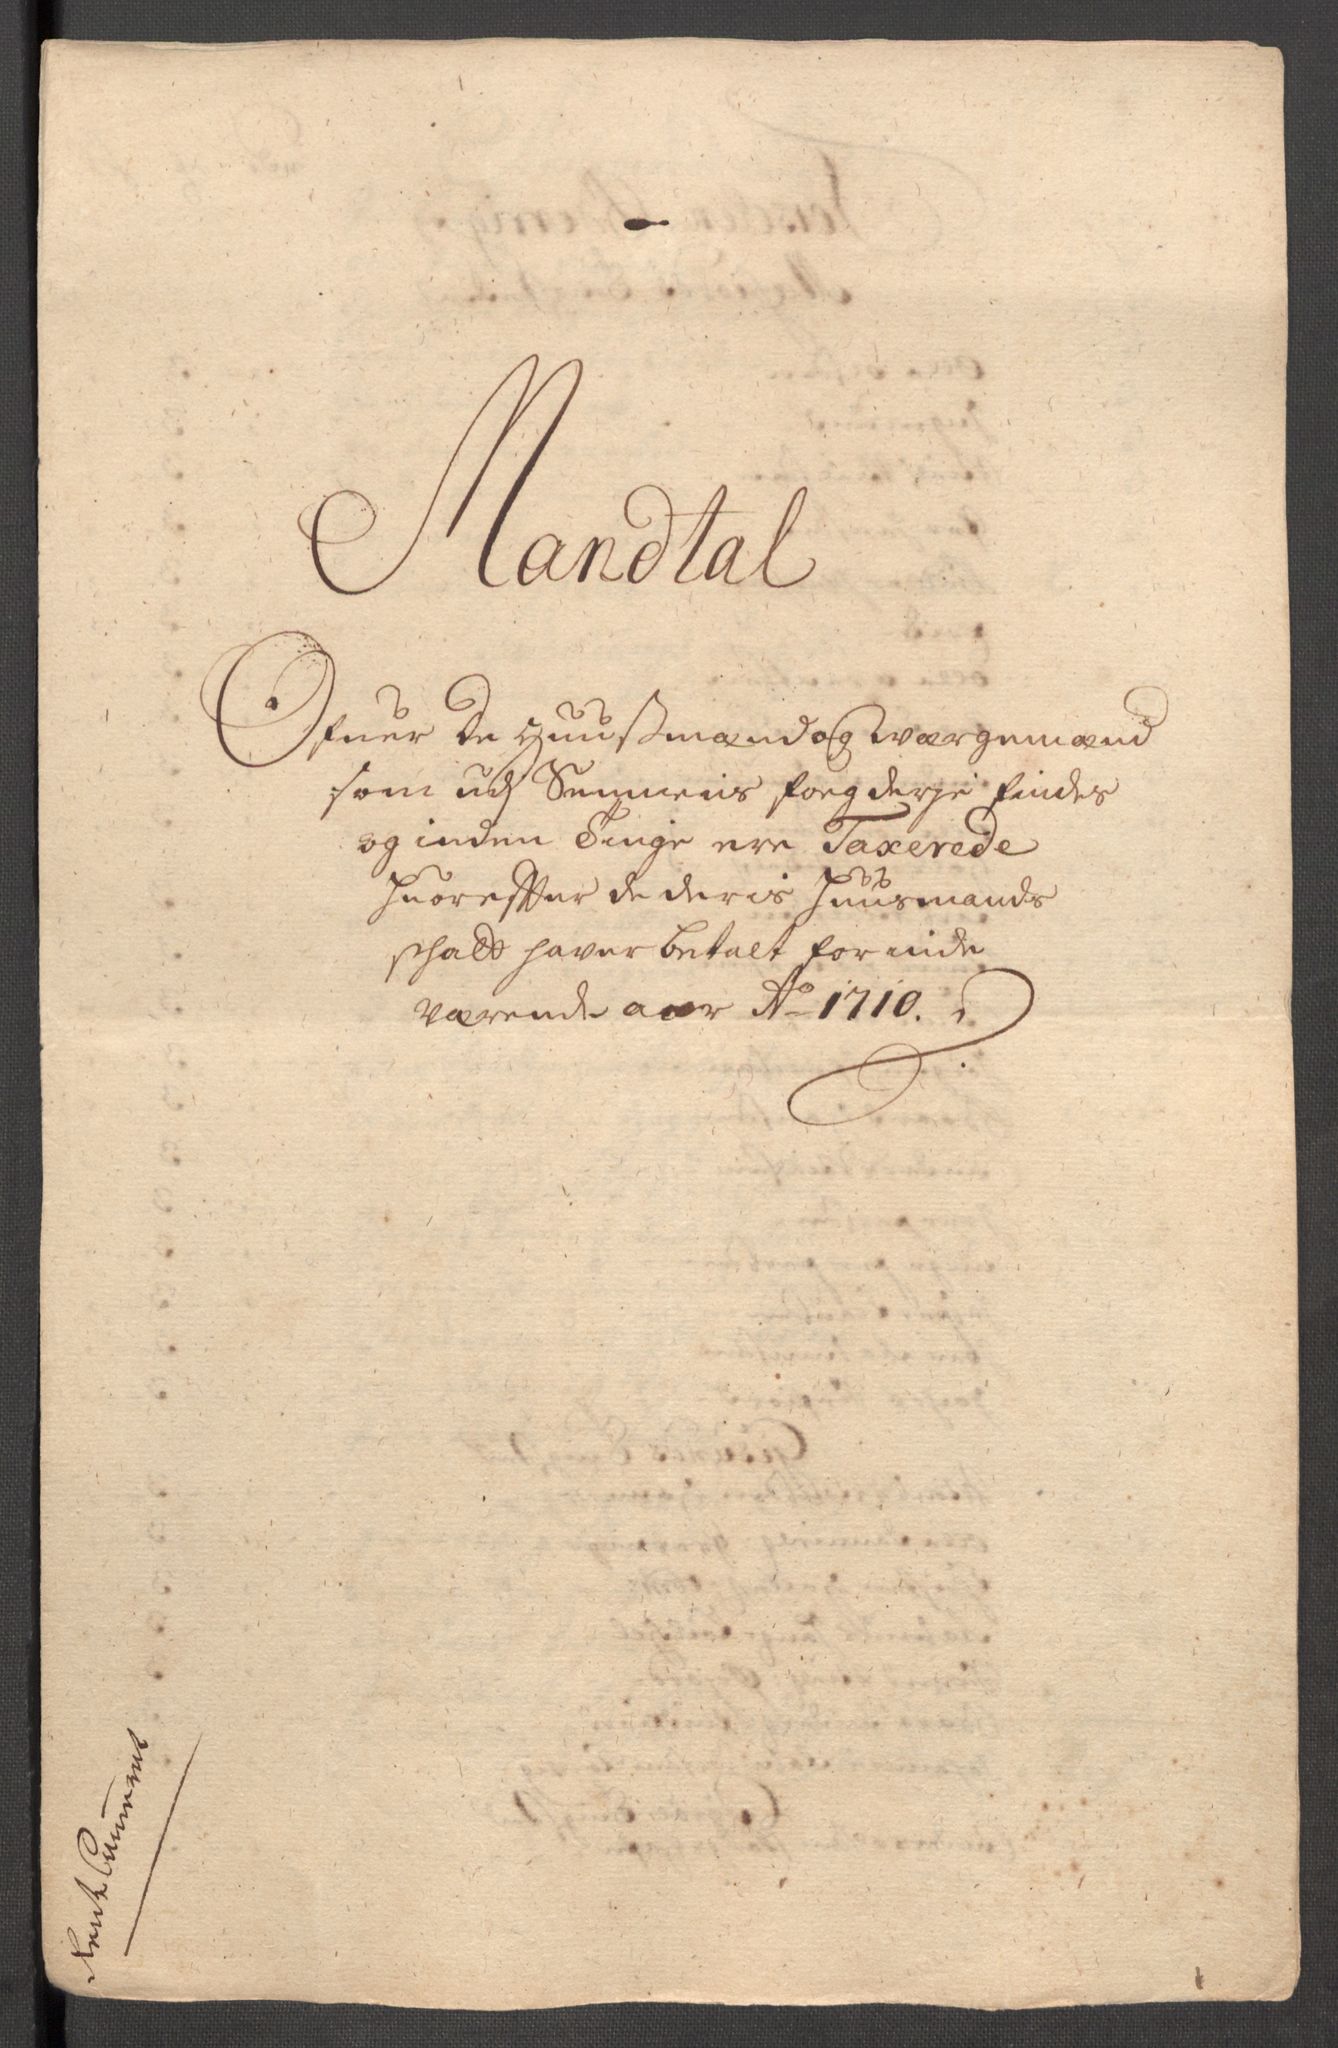 Mandtal
Ofuer De Huusmænd og Qværgemænd
som udj Senniens fogderje findes
og inden Tinge ere Taxerede
Huorefter de deris Huusmands
schatt haver betalt for inde
værende aar Ao 1710.
Rent Cammeret